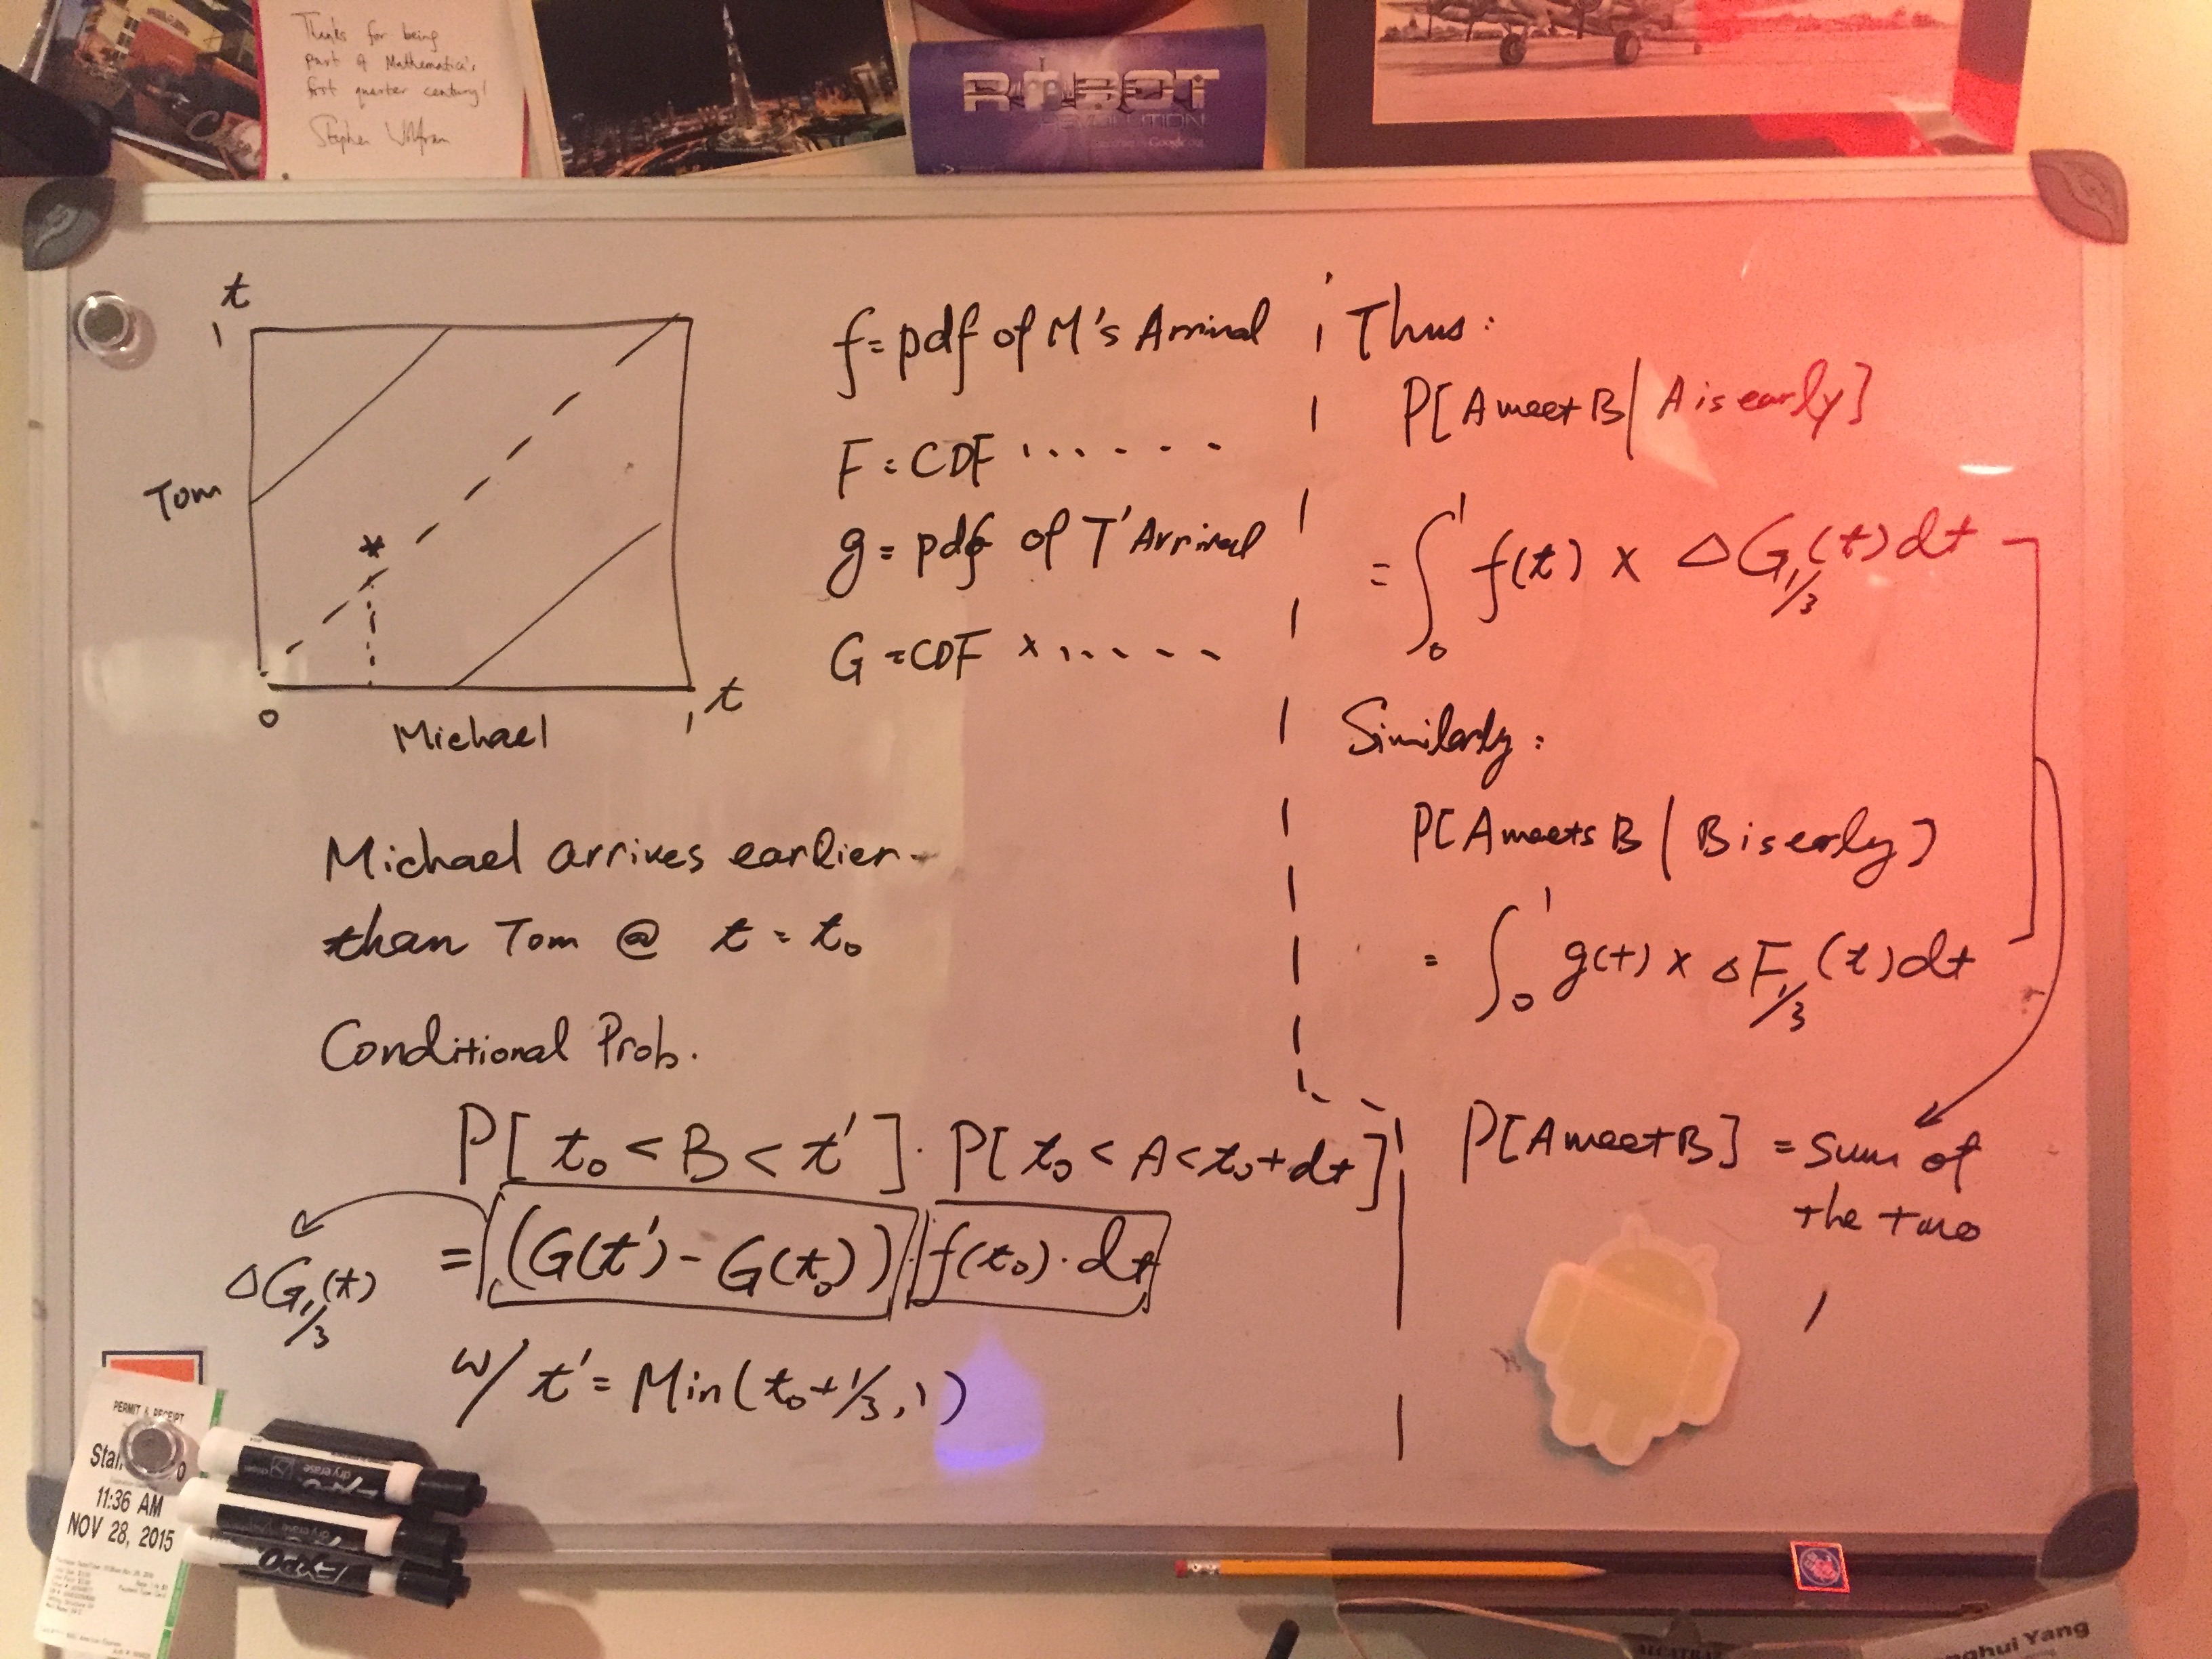 Thanks for being
part of Mathematica's
first quarter century!
Stephen Wolfram
ROBOT
REVOLUTION
t
1
Tom
*
0
1
t
Michael
f = pdf of M's Arrival
F = CDF ......
g = pdf of T' Arrival
G = CDF ......
Michael arrives earlier
than Tom @ t = t₀
Conditional Prob.
P[ t₀ < B < t' ] · P[ t₀ < A < t₀ + dt ]
= (G(t') - G(t₀)) · f(t₀) · dt
ΔG₁/₃(t)
w/ t' = Min(t₀ + 1/3, 1)
Thus:
P[A meet B | A is early]
= ∫₀¹ f(t) x ΔG₁/₃(t) dt
Similarly:
P[A meets B | B is early]
= ∫₀¹ g(t) x ΔF₁/₃(t) dt
P[A meet B] = sum of
the two
PERMIT & RECEIPT
11:36 AM
NOV 28, 2015
dry erase
dry erase
EXPO
Yang